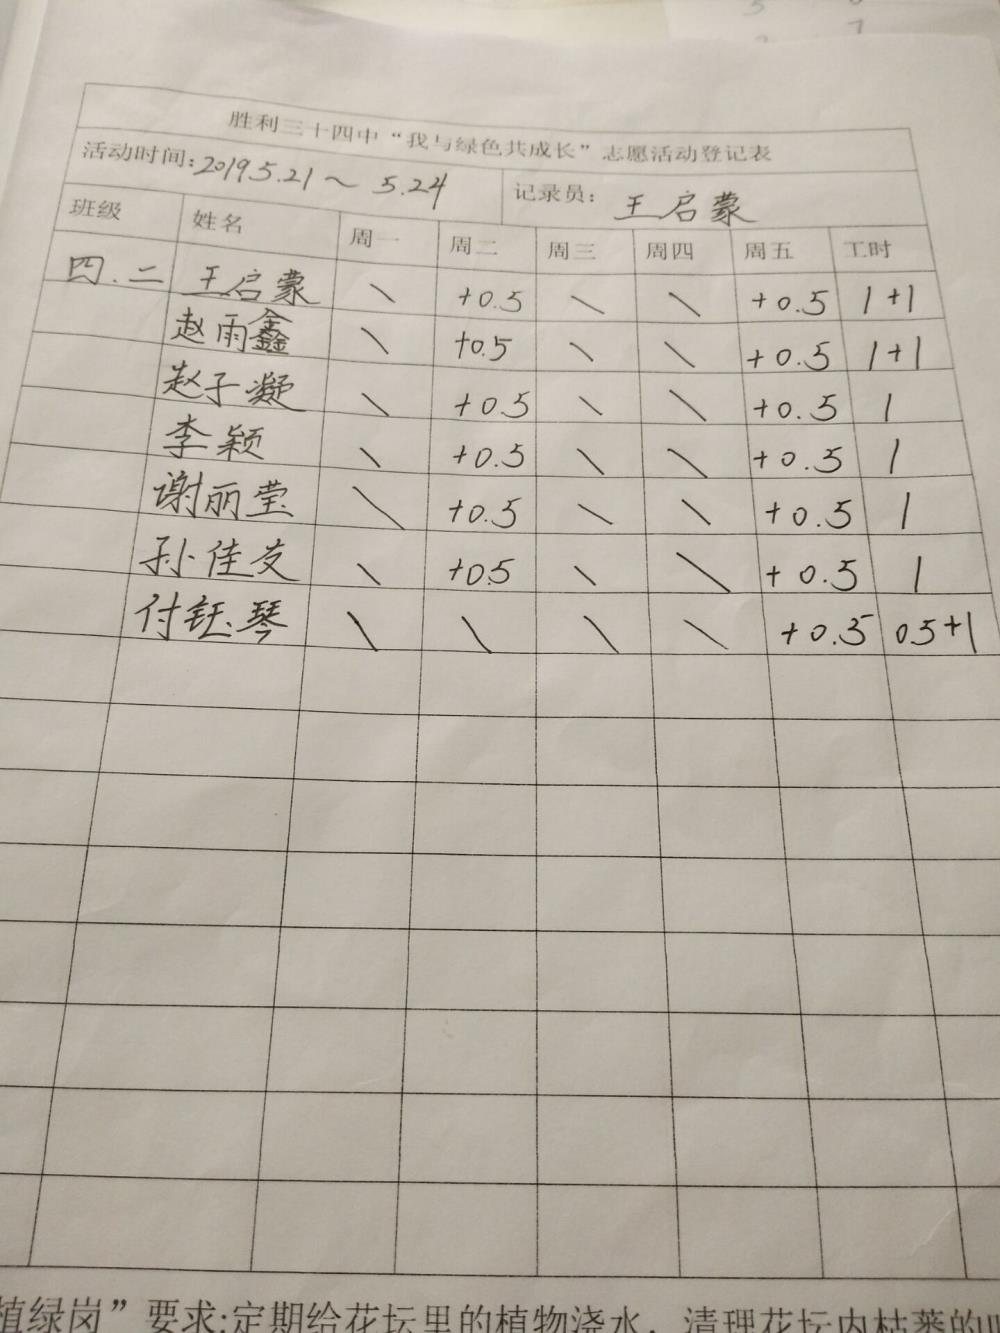 5
7
胜利三十四中“我与绿色共成长”志愿活动登记表
活动时间:2019.5.21～5.24 记录员: 王启蒙
班级 姓名 周一 周二 周三 周四 周五 工时
四.二 王启蒙 \ +0.5 \ \ +0.5 1+1
赵雨鑫 \ +0.5 \ \ +0.5 1+1
赵子凝 \ +0.5 \ \ +0.5 1
李颖 \ +0.5 \ \ +0.5 1
谢丽莹 \ +0.5 \ \ +0.5 1
孙佳友 \ +0.5 \ \ +0.5 1
付钰琴 \ \ \ \ +0.5 0.5+1
植绿岗”要求:定期给花坛里的植物浇水，清理花坛内枯萎的